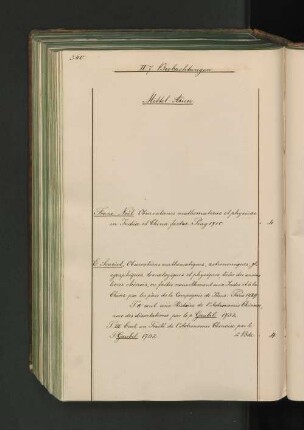 W. 7 Beobachtungen
Mittel Asien
Franc. Noël. Observationes mathematicae et physicae
in India et China factae. Prag 1710. 4
E. Souciet, Observations mathématiques, astronomiques, géo-
graphiques, chronologiques et physiques, tirées des anciens
livres chinois, ou faites nouvellement aux Indes et à la
Chine par les pères de la Compagnie de Jésus. Paris 1729
T. II cont. une Histoire de l'Astronomie Chinoise
avec des dissertations par le p. Gaubil 1732.
T. III Cont. un Traité de l'Astronomie Chinoise par le
P. Gaubil 1732. 4